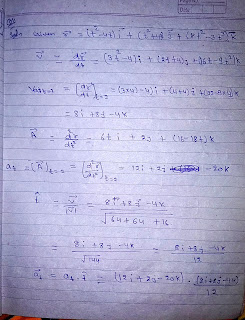 given r̅ = (t³-4t) i + (t²+4t) j + (8t²-3t³) k
V = dr̅/dt = (3t²-4) i + (2t+4) j + (16t-9t²) k
(dr/dt)t=2 = (3×4-4) i + (4+4) j +
= 8i + 8j - 4k
= 6t i + 2j + (16-18t) k
at = (A)t=2 = = 12i + 2j - 20k
= V/|V| = 8i + 8j - 4k / √64+64+16
= 8i + 8j - 4k / √144 = 8i + 8j - 4k / 12
= (12i + 2j - 20k) · (8i+8j-4k) / 12